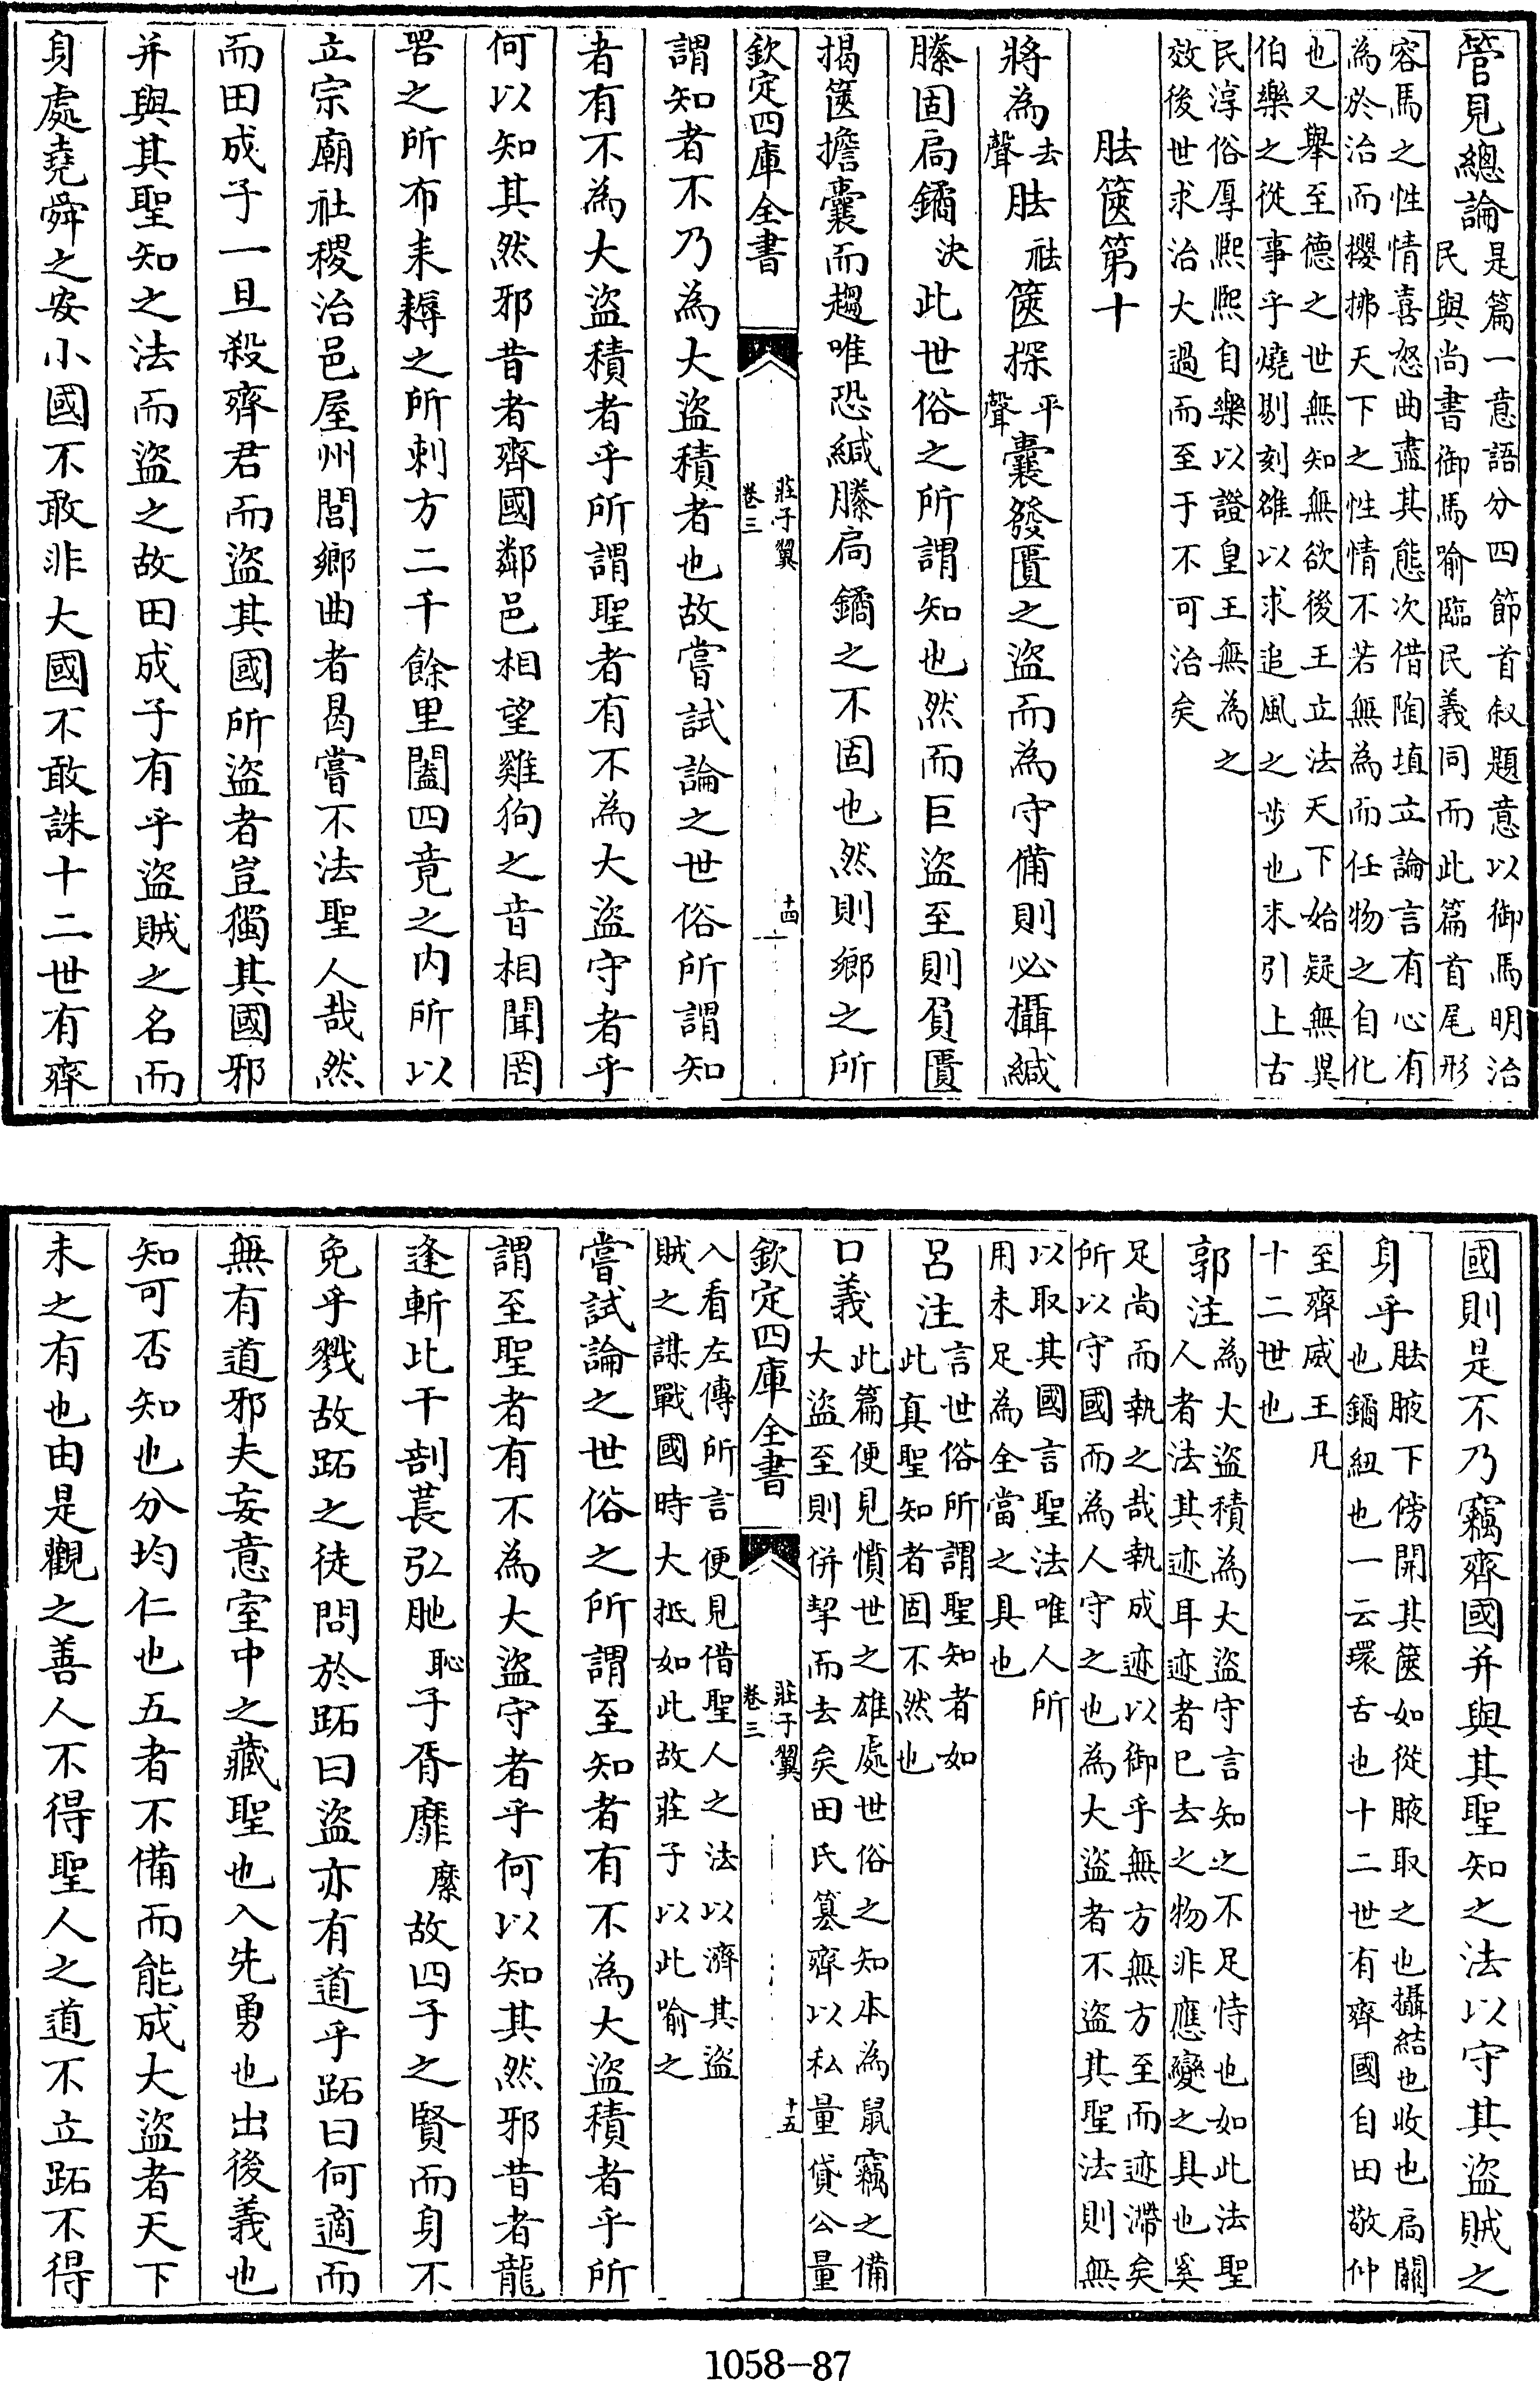 管見總論是篇一意語分四節首叙題意以御馬明治
民與尚書御馬喻臨民義同而此篇首尾形
容馬之性情喜怒曲盡其態次借陶埴立論言有心有
為於治而攖拂天下之性情不若無為而任物之自化
也又舉至德之世無知無欲後王立法天下始疑無異
伯樂之從事乎燒剔刻雒以求追風之步也末引上古
民淳俗厚熙熙自樂以證皇王無為之
效後世求治大過而至于不可治矣
胠篋第十
將為去聲胠祛篋探平聲囊發匱之盜而為守備則必攝緘
縢固扃鐍決此世俗之所謂知也然而巨盜至則負匱
揭篋擔囊而趨唯恐緘縢扃鐍之不固也然則鄉之所
欽定四庫全書
莊子翼
卷三
十四
謂知者不乃為大盜積者也故嘗試論之世俗所謂知
者有不為大盜積者乎所謂聖者有不為大盜守者乎
何以知其然邪昔者齊國鄰邑相望雞狗之音相聞罔
罟之所布耒耨之所刺方二千餘里闔四竟之內所以
立宗廟社稷治邑屋州閭鄉曲者曷嘗不法聖人哉然
而田成子一旦殺齊君而盜其國所盜者豈獨其國邪
并與其聖知之法而盜之故田成子有乎盜賊之名而
身處堯舜之安小國不敢非大國不敢誅十二世有齊
國則是不乃竊齊國并與其聖知之法以守其盜賊之
身乎胠腋下傍開其篋如從腋取之也攝結也收也扃關
也鐍紐也一云環舌也十二世有齊國自田敬仲
至齊威王凡
十二世也
郭注為大盜積為大盜守言知之不足恃也如此法聖
人者法其迹耳迹者已去之物非應變之具也奚
足尚而執之哉執成迹以御乎無方無方至而迹滯矣
所以守國而為人守之也為大盜者不盜其聖法則無
以取其國言聖法唯人所
用未足為全當之具也
呂注言世俗所謂聖知者如
此真聖知者固不然也
口義此篇便見憤世之雄處世俗之知本為鼠竊之備
大盜至則併挈而去矣田氏簒齊以私量貸公量
欽定四庫全書
莊子翼
卷三
十五
入看左傳所言便見借聖人之法以濟其盜
賊之謀戰國時大抵如此故莊子以此喻之
嘗試論之世俗之所謂至知者有不為大盜積者乎所
謂至聖者有不為大盜守者乎何以知其然邪昔者龍
逢斬比干剖萇弘胣恥子胥靡縻故四子之賢而身不
免乎戮故跖之徒問於跖曰盜亦有道乎跖曰何適而
無有道邪夫妄意室中之藏聖也入先勇也出後義也
知可否知也分均仁也五者不備而能成大盜者天下
未之有也由是觀之善人不得聖人之道不立跖不得
1058-87